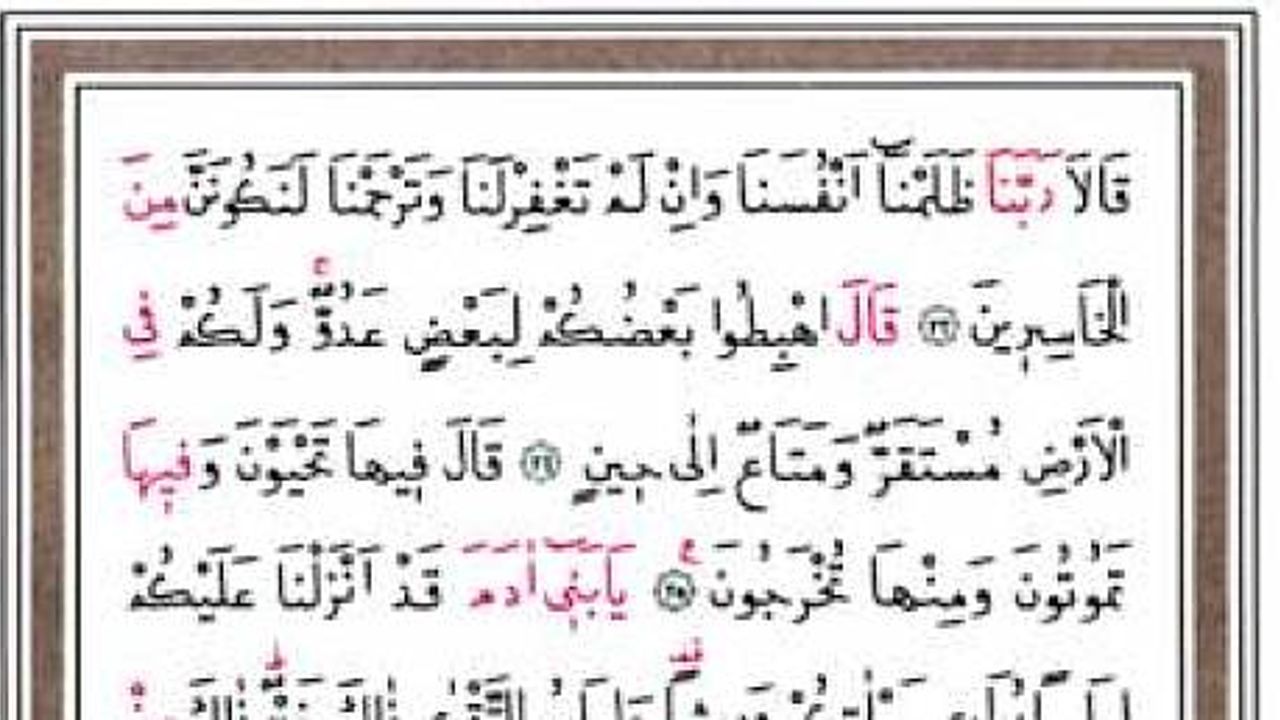 قَالَا رَبَّنَا ظَلَمْنَٓا اَنْفُسَنَا وَاِنْ لَمْ تَغْفِرْلَنَا وَتَرْحَمْنَا لَنَكُونَنَّ مِنَ
الْخَاسِرٖينَ ﴿٢٣﴾ قَالَ اهْبِطُوا بَعْضُكُمْ لِبَعْضٍ عَدُوٌّۚ وَلَكُمْ فِي
الْاَرْضِ مُسْتَقَرٌّ وَمَتَاعٌ اِلٰى حٖينٍ ﴿٢٤﴾ قَالَ فٖيهَا تَحْيَوْنَ وَفٖيهَا
تَمُوتُونَ وَمِنْهَا تُخْرَجُونَ ﴿٢٥﴾ يَابَنٖٓي اٰدَمَ قَدْ اَنْزَلْنَا عَلَيْكُمْ